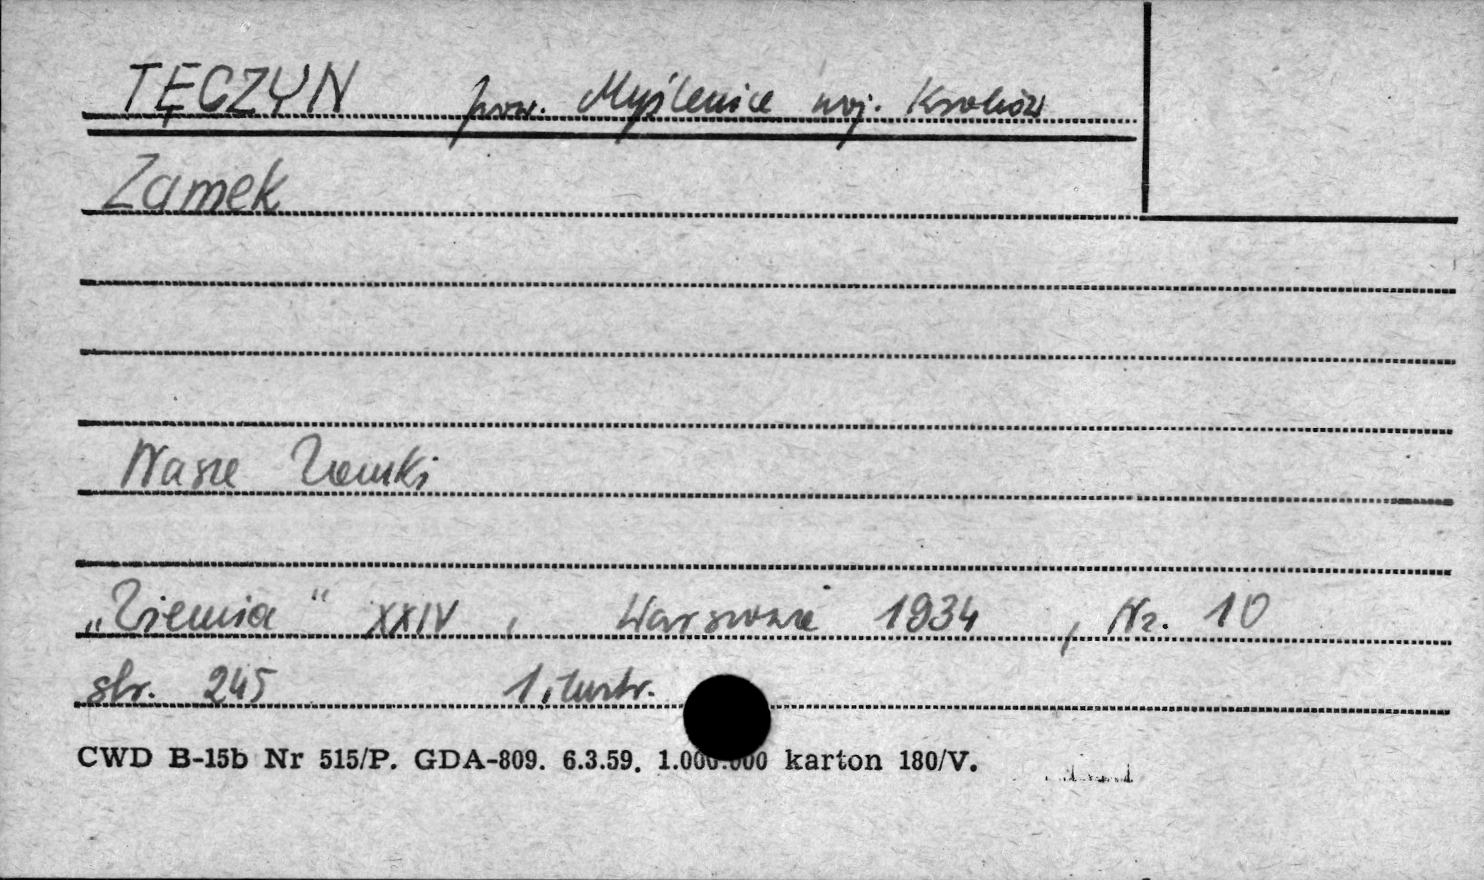 TĘCZYN pow. Myślenice woj. Kraków
Zamek
Nasze Zamki
„Ziemia" XXIV, Warszawa 1934, Nr. 10
str. 245 1 ilustr.
CWD B-15b Nr 515/P. GDA-809. 6.3.59. 1.000.000 karton 180/V.